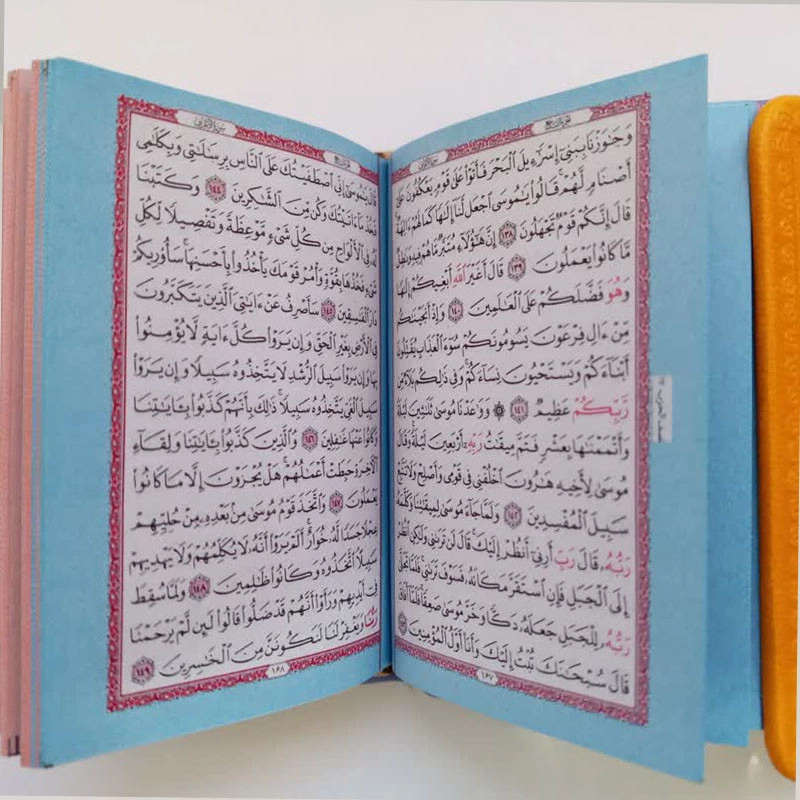 الجزء التاسع سورة الأعراف
وَجَٰوَزْنَا بِبَنِىٓ إِسْرَٰٓءِيلَ ٱلْبَحْرَ فَأَتَوْا۟ عَلَىٰ قَوْمٍ يَعْكُفُونَ عَلَىٰٓ
أَصْنَامٍ لَّهُمْ ۚ قَالُوا۟ يَٰمُوسَى ٱجْعَل لَّنَآ إِلَٰهًا كَمَا لَهُمْ ءَالِهَةٌ ۚ
قَالَ إِنَّكُمْ قَوْمٌ تَجْهَلُونَ ١٣٨ إِنَّ هَٰٓؤُلَآءِ مُتَبَّرٌ مَّا هُمْ فِيهِ وَبَٰطِلٌ
مَّا كَانُوا۟ يَعْمَلُونَ ١٣٩ قَالَ أَغَيْرَ ٱللَّهِ أَبْغِيكُمْ إِلَٰهًا
وَهُوَ فَضَّلَكُمْ عَلَى ٱلْعَٰلَمِينَ ١٤٠ وَإِذْ أَنجَيْنَٰكُم
مِّنْ ءَالِ فِرْعَوْنَ يَسُومُونَكُمْ سُوٓءَ ٱلْعَذَابِ ۖ يُقَتِّلُونَ
أَبْنَآءَكُمْ وَيَسْتَحْيُونَ نِسَآءَكُمْ ۚ وَفِى ذَٰلِكُم بَلَآءٌ مِّن
رَّبِّكُمْ عَظِيمٌ ١٤١ ۞ وَوَٰعَدْنَا مُوسَىٰ ثَلَٰثِينَ لَيْلَةً
وَأَتْمَمْنَٰهَا بِعَشْرٍ فَتَمَّ مِيقَٰتُ رَبِّهِۦٓ أَرْبَعِينَ لَيْلَةً ۚ وَقَالَ
مُوسَىٰ لِأَخِيهِ هَٰرُونَ ٱخْلُفْنِى فِى قَوْمِى وَأَصْلِحْ وَلَا تَتَّبِعْ
سَبِيلَ ٱلْمُفْسِدِينَ ١٤٢ وَلَمَّا جَآءَ مُوسَىٰ لِمِيقَٰتِنَا وَكَلَّمَهُۥ
رَبُّهُۥ قَالَ رَبِّ أَرِنِىٓ أَنظُرْ إِلَيْكَ ۚ قَالَ لَن تَرَىٰنِى وَلَٰكِنِ ٱنظُرْ
إِلَى ٱلْجَبَلِ فَإِنِ ٱسْتَقَرَّ مَكَانَهُۥ فَسَوْفَ تَرَىٰنِى ۚ فَلَمَّا تَجَلَّىٰ
رَبُّهُۥ لِلْجَبَلِ جَعَلَهُۥ دَكًّا وَخَرَّ مُوسَىٰ صَعِقًا ۚ فَلَمَّآ أَفَاقَ
قَالَ سُبْحَٰنَكَ تُبْتُ إِلَيْكَ وَأَنَا۠ أَوَّلُ ٱلْمُؤْمِنِينَ ١٤٣
١٦٧
سورة الأعراف
قَالَ يَٰمُوسَىٰٓ إِنِّى ٱصْطَفَيْتُكَ عَلَى ٱلنَّاسِ بِرِسَٰلَٰتِى وَبِكَلَٰمِى
فَخُذْ مَآ ءَاتَيْتُكَ وَكُن مِّنَ ٱلشَّٰكِرِينَ ١٤٤ وَكَتَبْنَا
لَهُۥ فِى ٱلْأَلْوَاحِ مِن كُلِّ شَىْءٍ مَّوْعِظَةً وَتَفْصِيلًا لِّكُلِّ
شَىْءٍ فَخُذْهَا بِقُوَّةٍ وَأْمُرْ قَوْمَكَ يَأْخُذُوا۟ بِأَحْسَنِهَا ۚ سَأُو۟رِيكُمْ
دَارَ ٱلْفَٰسِقِينَ ١٤٥ سَأَصْرِفُ عَنْ ءَايَٰتِىَ ٱلَّذِينَ يَتَكَبَّرُونَ
فِى ٱلْأَرْضِ بِغَيْرِ ٱلْحَقِّ وَإِن يَرَوْا۟ كُلَّ ءَايَةٍ لَّا يُؤْمِنُوا۟
بِهَا وَإِن يَرَوْا۟ سَبِيلَ ٱلرُّشْدِ لَا يَتَّخِذُوهُ سَبِيلًا وَإِن يَرَوْا۟
سَبِيلَ ٱلْغَىِّ يَتَّخِذُوهُ سَبِيلًا ۚ ذَٰلِكَ بِأَنَّهُمْ كَذَّبُوا۟ بِـَٔايَٰتِنَا
وَكَانُوا۟ عَنْهَا غَٰفِلِينَ ١٤٦ وَٱلَّذِينَ كَذَّبُوا۟ بِـَٔايَٰتِنَا وَلِقَآءِ
ٱلْـَٔاخِرَةِ حَبِطَتْ أَعْمَٰلُهُمْ ۚ هَلْ يُجْزَوْنَ إِلَّا مَا كَانُوا۟
يَعْمَلُونَ ١٤٧ وَٱتَّخَذَ قَوْمُ مُوسَىٰ مِنۢ بَعْدِهِۦ مِنْ حُلِيِّهِمْ
عِجْلًا جَسَدًا لَّهُۥ خُوَارٌ ۚ أَلَمْ يَرَوْا۟ أَنَّهُۥ لَا يُكَلِّمُهُمْ وَلَا يَهْدِيهِمْ
سَبِيلًا ۘ ٱتَّخَذُوهُ وَكَانُوا۟ ظَٰلِمِينَ ١٤٨ وَلَمَّا سُقِطَ
فِىٓ أَيْدِيهِمْ وَرَأَوْا۟ أَنَّهُمْ قَدْ ضَلُّوا۟ قَالُوا۟ لَئِن لَّمْ يَرْحَمْنَا
رَبُّنَا وَيَغْفِرْ لَنَا لَنَكُونَنَّ مِنَ ٱلْخَٰسِرِينَ ١٤٩
١٦٨